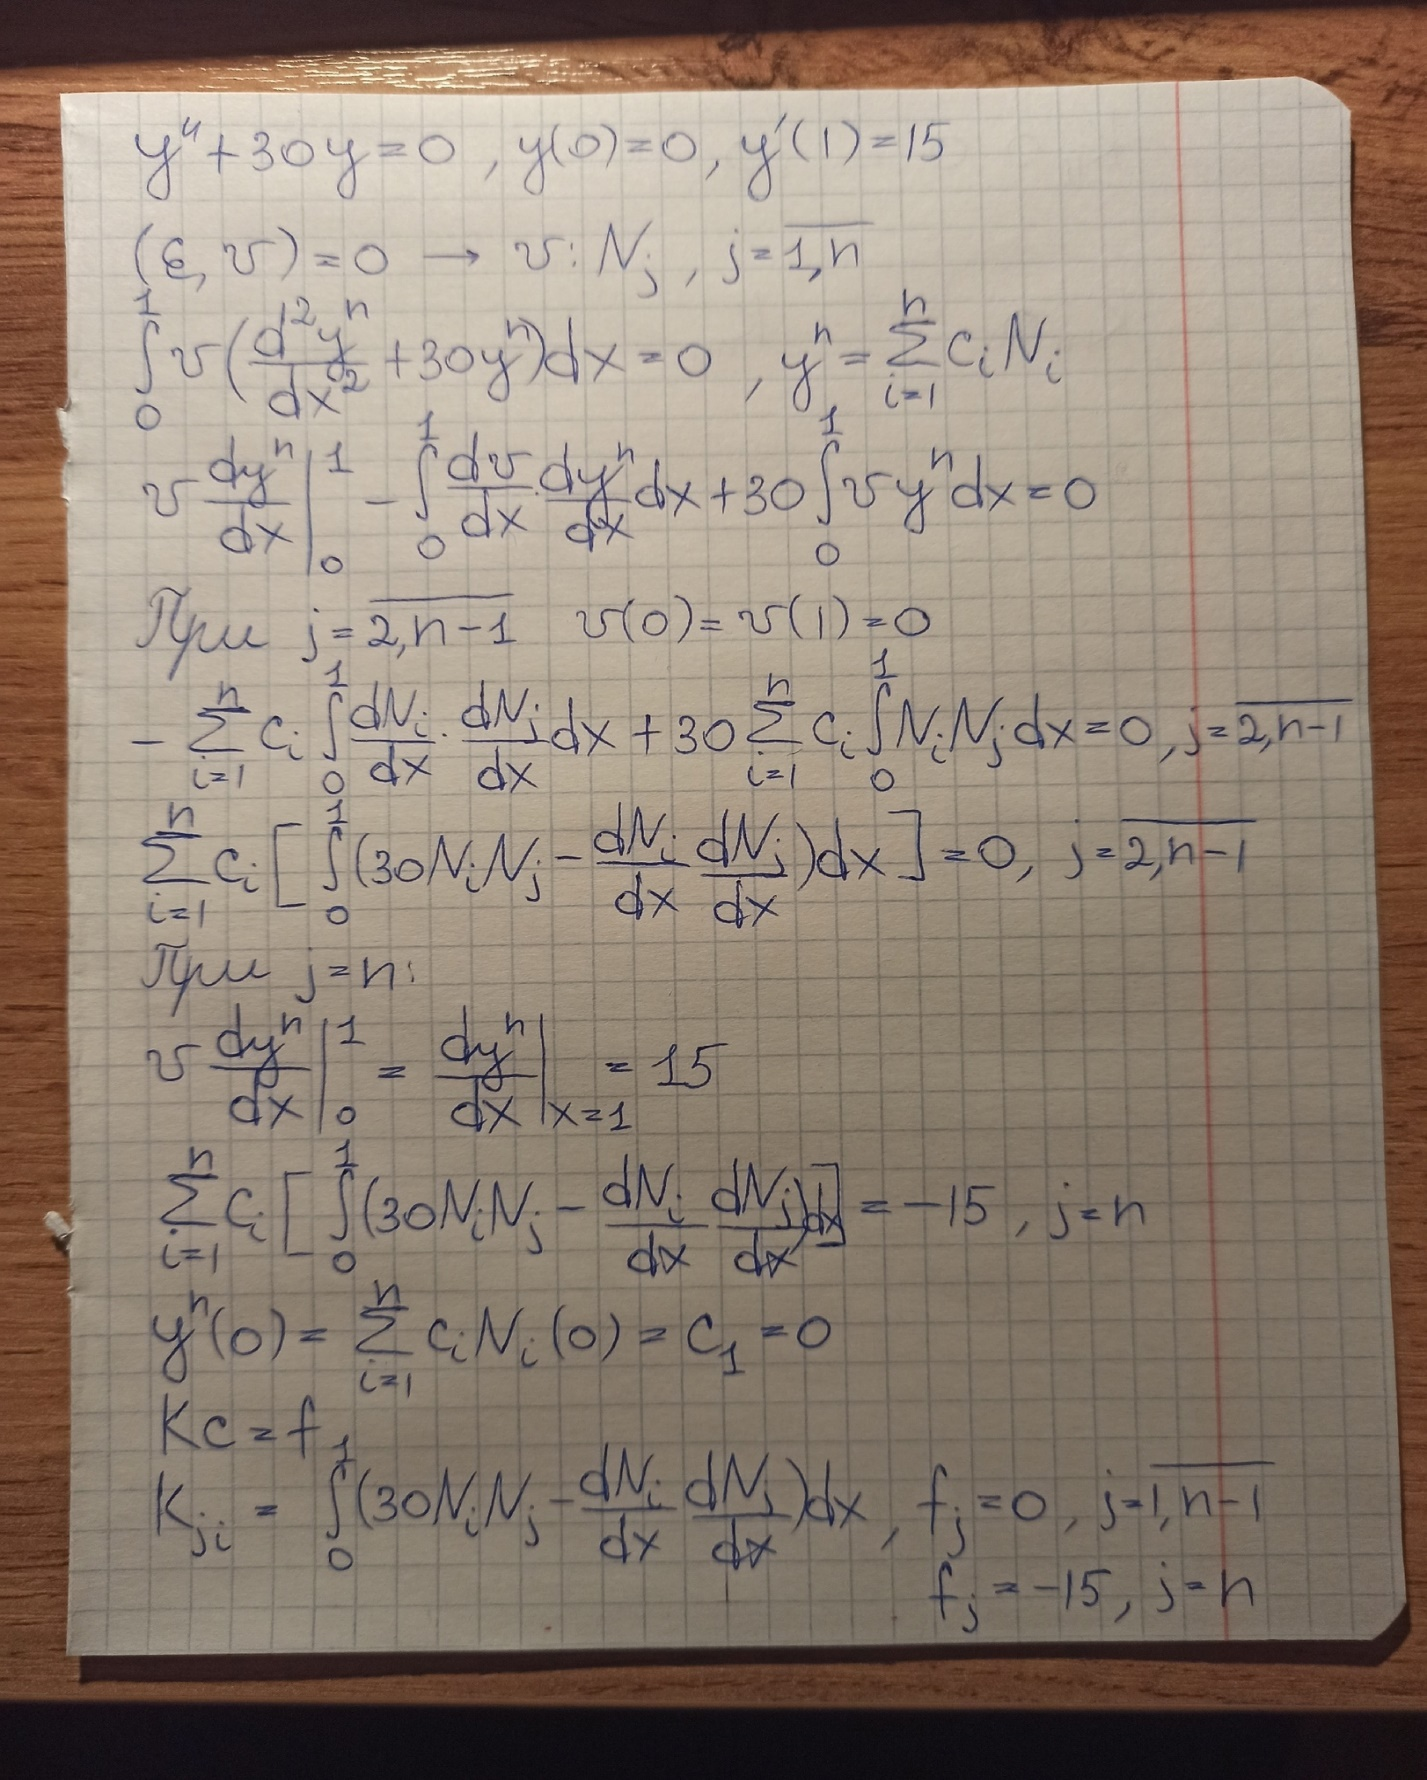 y'' + 30y = 0 , y(0) = 0, y'(1) = 15
(ε, v) = 0 → v: N_j , j = \overline{1,n}
\int_0^1 v(\frac{d^2y^n}{dx^2} + 30y^n)dx = 0 , y^n = \sum_{i=1}^n c_i N_i
v \frac{dy^n}{dx} |_0^1 - \int_0^1 \frac{dv}{dx} \frac{dy^n}{dx} dx + 30 \int_0^1 v y^n dx = 0
При j = \overline{2,n-1} v(0) = v(1) = 0
- \sum_{i=1}^n c_i \int_0^1 \frac{dN_i}{dx} \cdot \frac{dN_j}{dx} dx + 30 \sum_{i=1}^n c_i \int_0^1 N_i N_j dx = 0 , j = \overline{2,n-1}
\sum_{i=1}^n c_i [ \int_0^1 (30N_i N_j - \frac{dN_i}{dx} \frac{dN_j}{dx})dx ] = 0, j = \overline{2,n-1}
При j = n:
v \frac{dy^n}{dx} |_0^1 = \frac{dy^n}{dx} |_{x=1} = 15
\sum_{i=1}^n c_i [ \int_0^1 (30N_i N_j - \frac{dN_i}{dx} \frac{dN_j}{dx})dx ] = -15 , j = n
y^n(0) = \sum_{i=1}^n c_i N_i(0) = c_1 = 0
Kc = f
K_{ji} = \int_0^1 (30N_i N_j - \frac{dN_i}{dx} \frac{dN_j}{dx})dx , f_j = 0 , j = \overline{1,n-1}
f_j = -15 , j = n